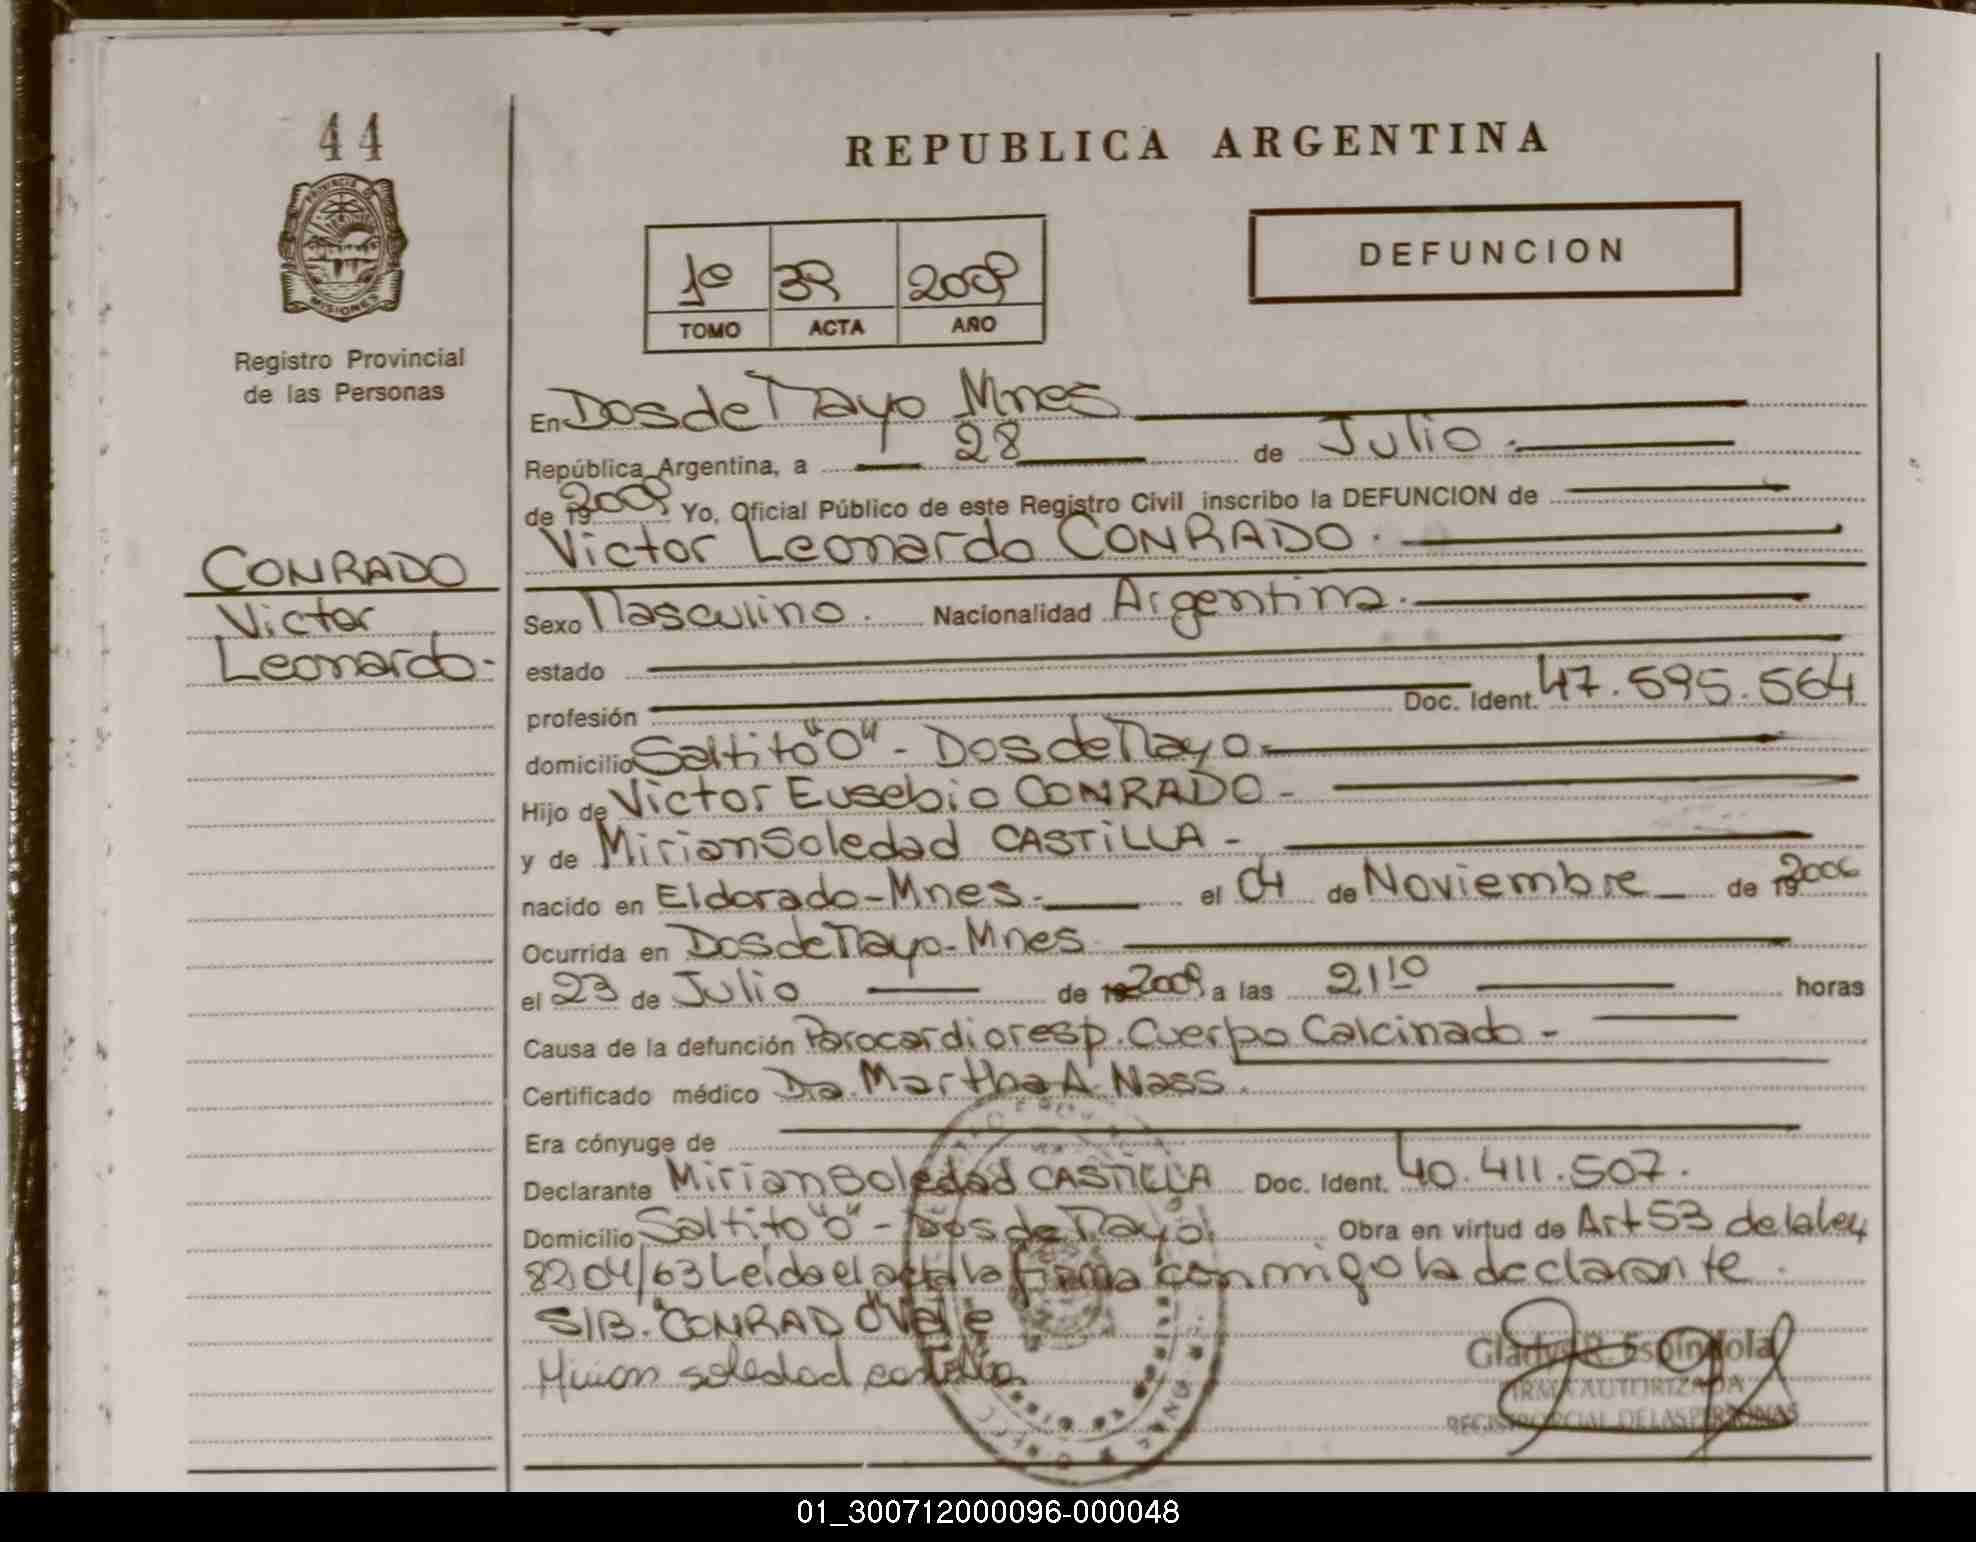 44
PROVINCIA DE
MISIONES
Registro Provincial
de las Personas
REPUBLICA ARGENTINA
1º 39 2009
TOMO ACTA AÑO
DEFUNCION
En Dos de Mayo Mnes
República Argentina, a 28 de Julio.
de 192009 Yo, Oficial Público de este Registro Civil inscribo la DEFUNCION de
Victor Leonardo CONRADO.
CONRADO
Victor
Leonardo-
Sexo Masculino. Nacionalidad Argentina.
estado
profesión Doc. Ident. 47.595.564
domicilio Saltito "O" - Dos de Mayo-
Hijo de Victor Eusebio CONRADO -
y de Mirian Soledad CASTiLLA -
nacido en Eldorado-Mnes. el 04 de Noviembre de 192006
Ocurrida en Dos de Mayo-Mnes
el 23 de Julio de 192009 a las 21 10 horas
Causa de la defunción Parocardioresp. Cuerpo Calcinado -
Certificado médico Dra. Martha A. Nass.
Era cónyuge de
Declarante Mirian Soledad CASTiLLA Doc. Ident. 40.411.507.
Domicilio Saltito "O" - Dos de Mayo. Obra en virtud de Art 53 de la ley
8204/63 Leida el acta la firma conmigo la declarante.
S/B. "CONRADO" Vale
Mirian soledad castilla
Gladys R. Espindola
FIRMA AUTORIZADA
REGISTRO PCIAL DE LAS PERSONAS
01_300712000096-000048